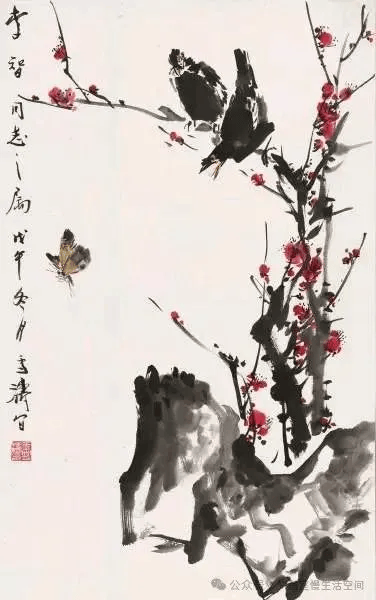 李智同志之属戊午冬月雪涛写
公众号
慢生活空间